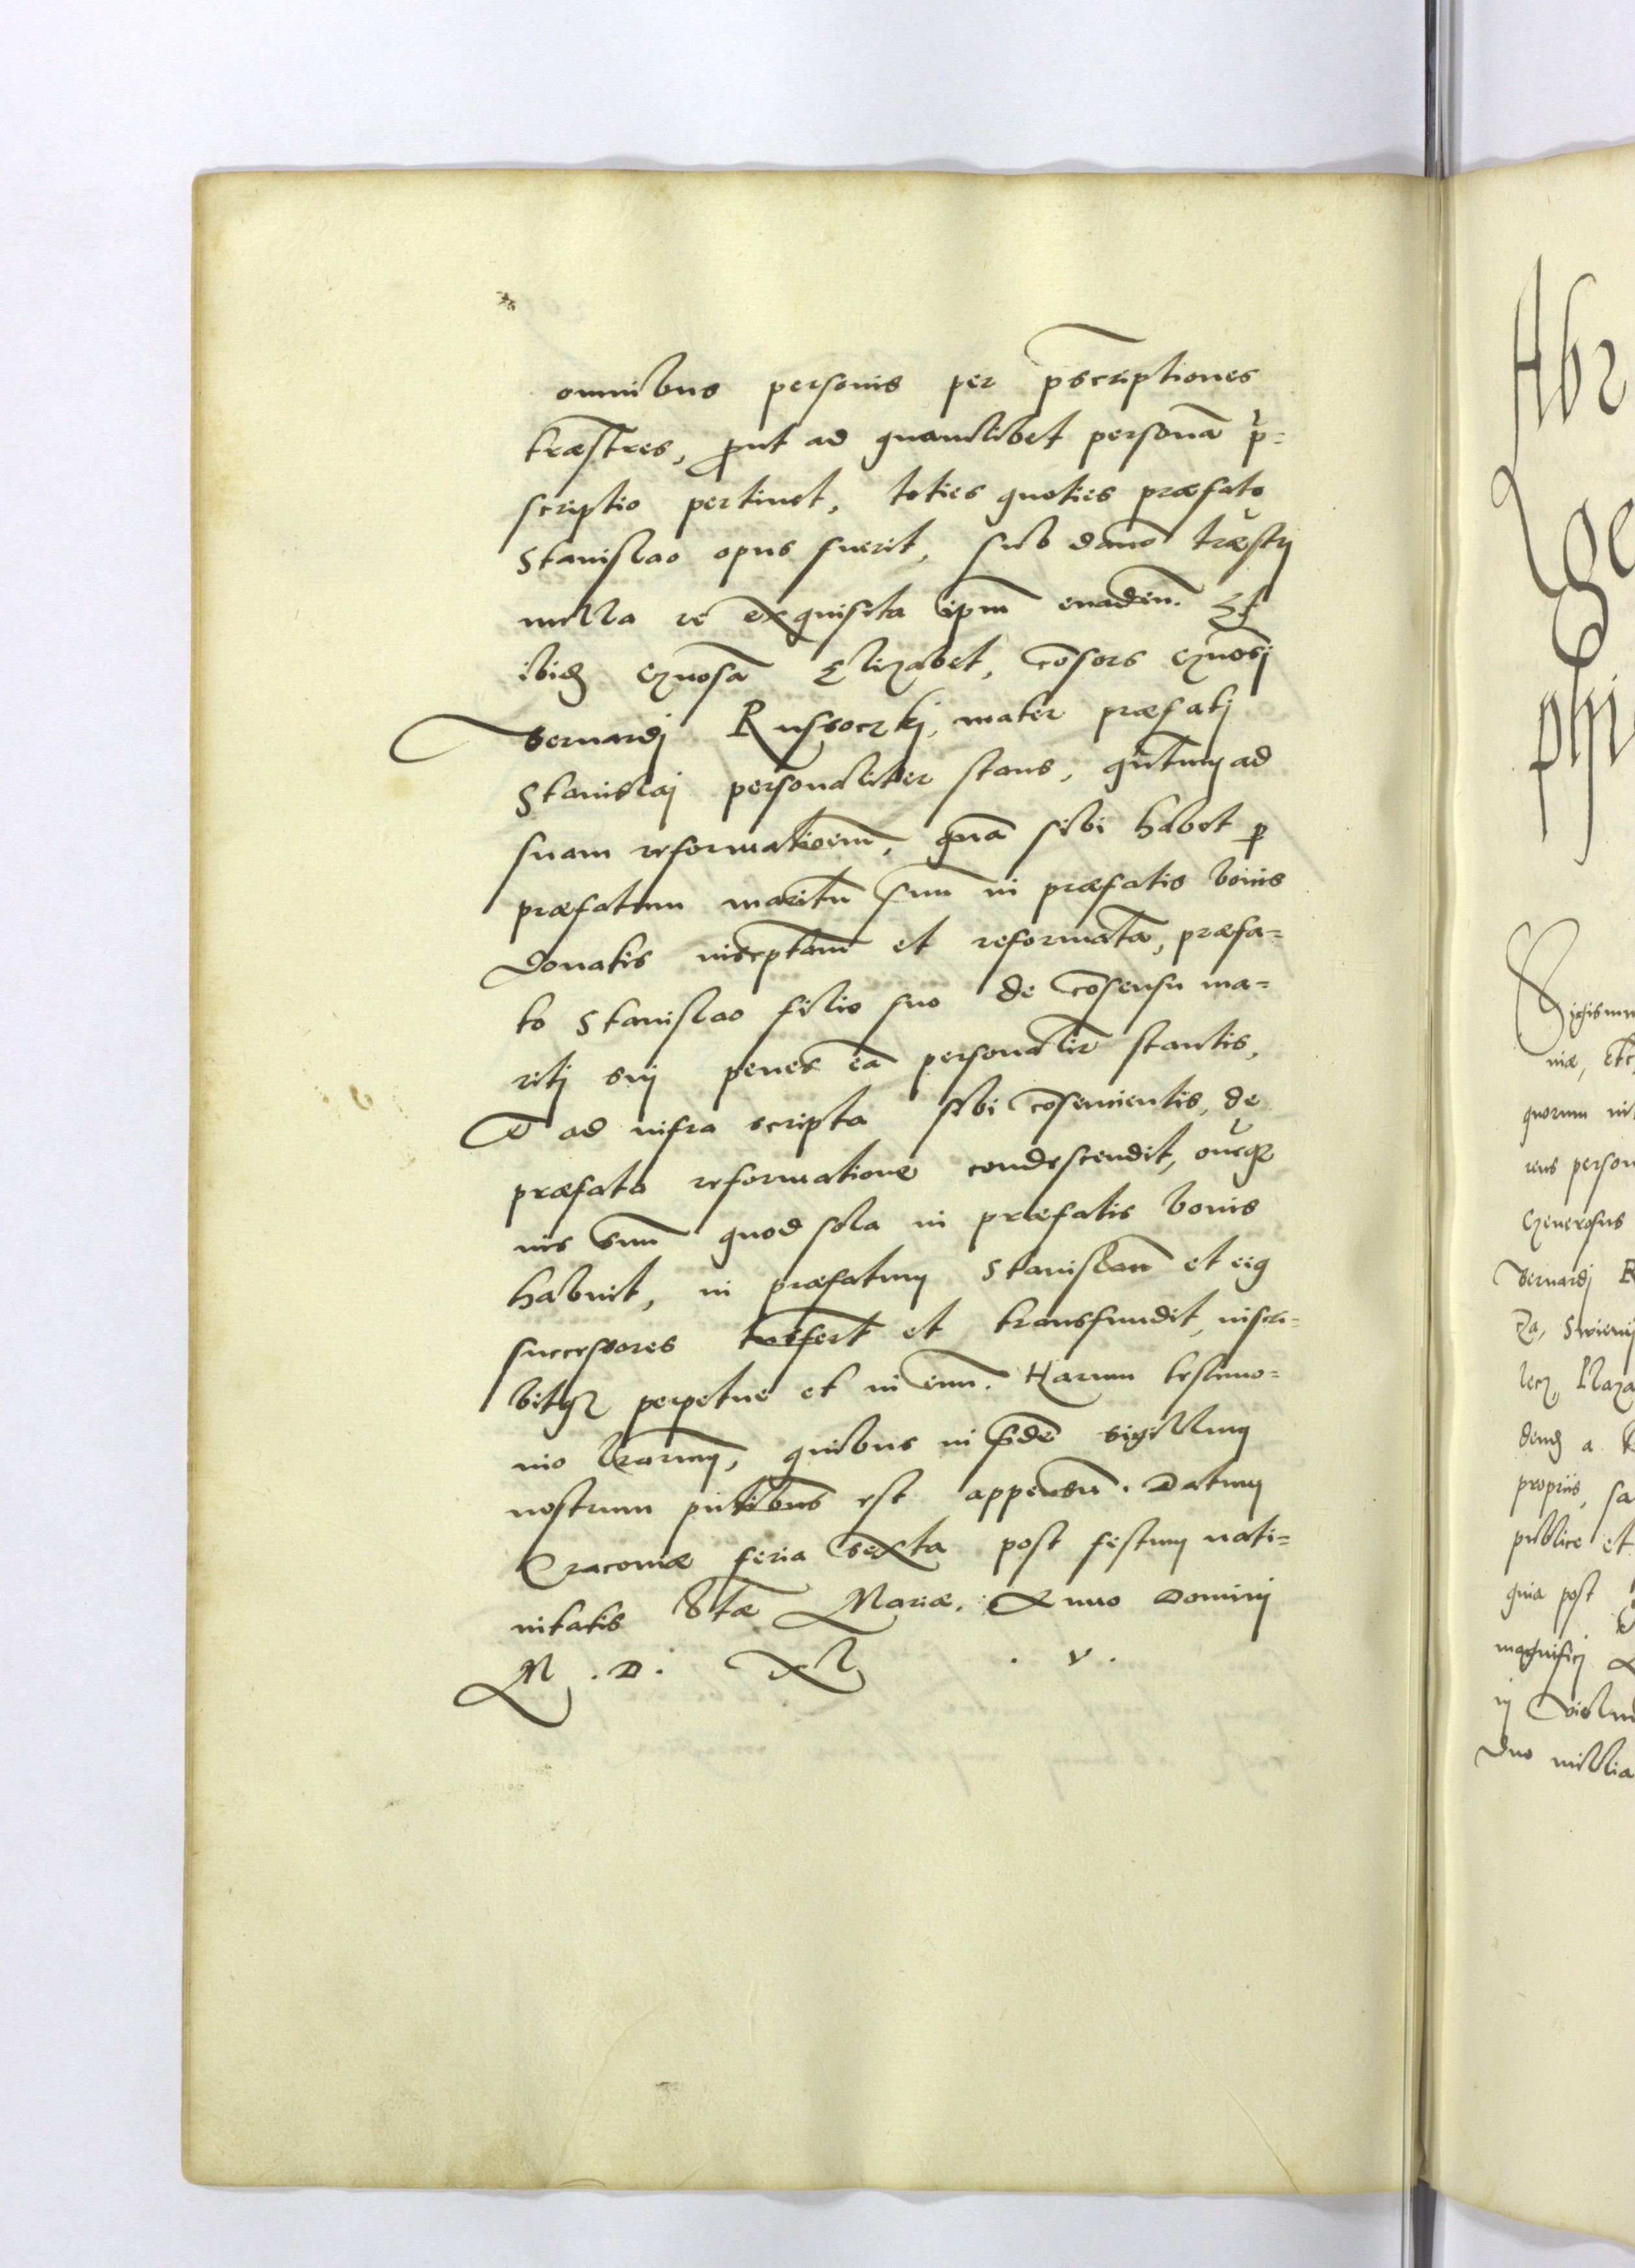 omnibus personis per p̄scriptiones
træstres, ꝓut ad quamlibet personā p̄=
scriptio pertinet, toties quoties præfato
Stanislao opus fuerit, sub damō træstrj
nulla re exquisita ipm̄ euaden̄. Et
ibidē Gn̄osa Elizabet, cōsors Gn̄osj
Bernardj Russoczkj, mater præfatj
Stanislaj personaliter stans, qn̄tum ad
suam reformationem̄, quā sibi habet ꝑ
præfatum maritū suum̄ in præfatis bonis
donatis inscptam̄ et reformatā, præfa=
to Stanislao filio suo de cōsensu ma=
ritj suj penes eā personalit̄ stantis,
et ad infra scripta sibi cōsentientis, de
præfata reformatione condescendit, oneqꝫ
ius suum̄ quod sola in præfatis bonis
habuit, in præfatum Stanislaum̄ et eiꝯ
successores trāsfert et transfundit, inscri=
bitqꝫ perpetue et in eum̄. Harum testimo=
nio lr̄arum, quibus in fidē sigillum
nostrum pn̄tibus est appensū. Datum
Cracouiæ feria sexta post festum nati=
uitatis Stæ Mariæ. Anno Dominj
M . D . XL . V .
Abr
ge
phi
Sigismu
niæ, Etc
quorum
rens person
Generosus
Bernardj R
propriis, sa
publice et
quia post
magnificj
duo millia